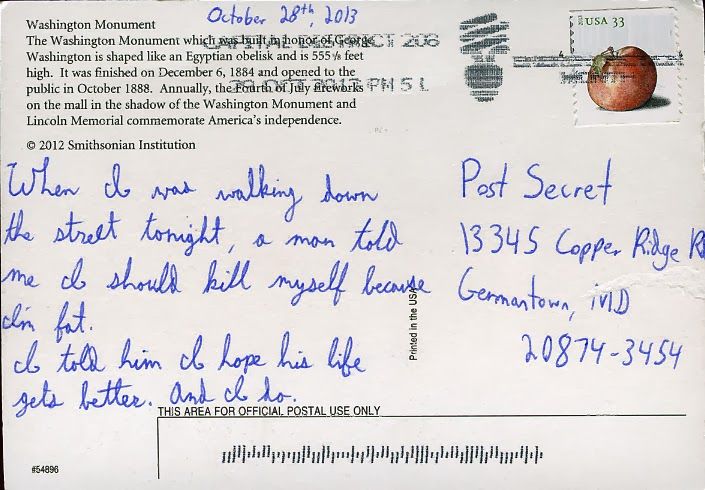 October 28th, 2013
Washington Monument
The Washington Monument which was built in honor of George
Washington is shaped like an Egyptian obelisk and is 555⅛ feet
high. It was finished on December 6, 1884 and opened to the
public in October 1888. Annually, the Fourth of July fireworks
on the mall in the shadow of the Washington Monument and
Lincoln Memorial commemorate America's independence.
© 2012 Smithsonian Institution
CAPITAL DISTRICT 208
PM 5 L
USA 33
When I was walking down
the street tonight, a man told
me I should kill myself because
I'm fat.
I told him I hope his life
gets better. And I do.
Post Secret
13345 Copper Ridge Rd
Germantown, MD
20874-3454
Printed in the USA
THIS AREA FOR OFFICIAL POSTAL USE ONLY
#54896